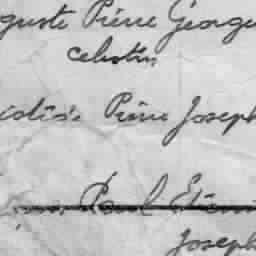 guste Pierre George
Celestin
Pierre Joseph
Paul Etien
Joseph